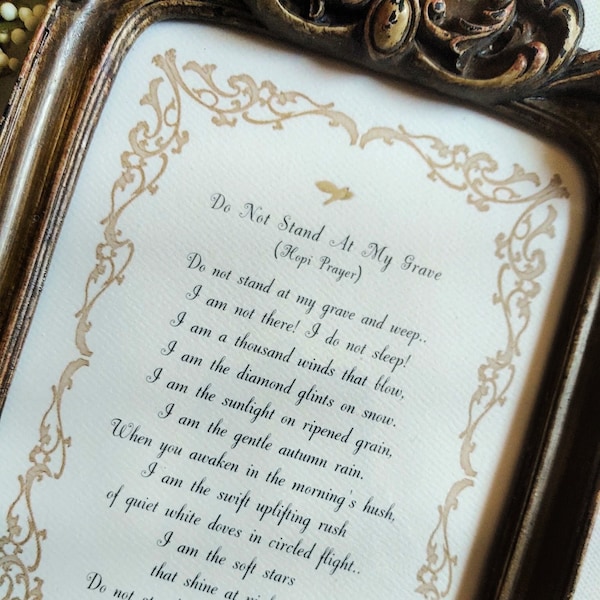 Do Not Stand At My Grave
(Hopi Prayer)
Do not stand at my grave and weep..
I am not there! I do not sleep!
I am a thousand winds that blow,
I am the diamond glints on snow.
I am the sunlight on ripened grain,
I am the gentle autumn rain.
When you awaken in the morning's hush,
I am the swift uplifting rush
of quiet white doves in circled flight..
I am the soft stars
that shine at
Do not